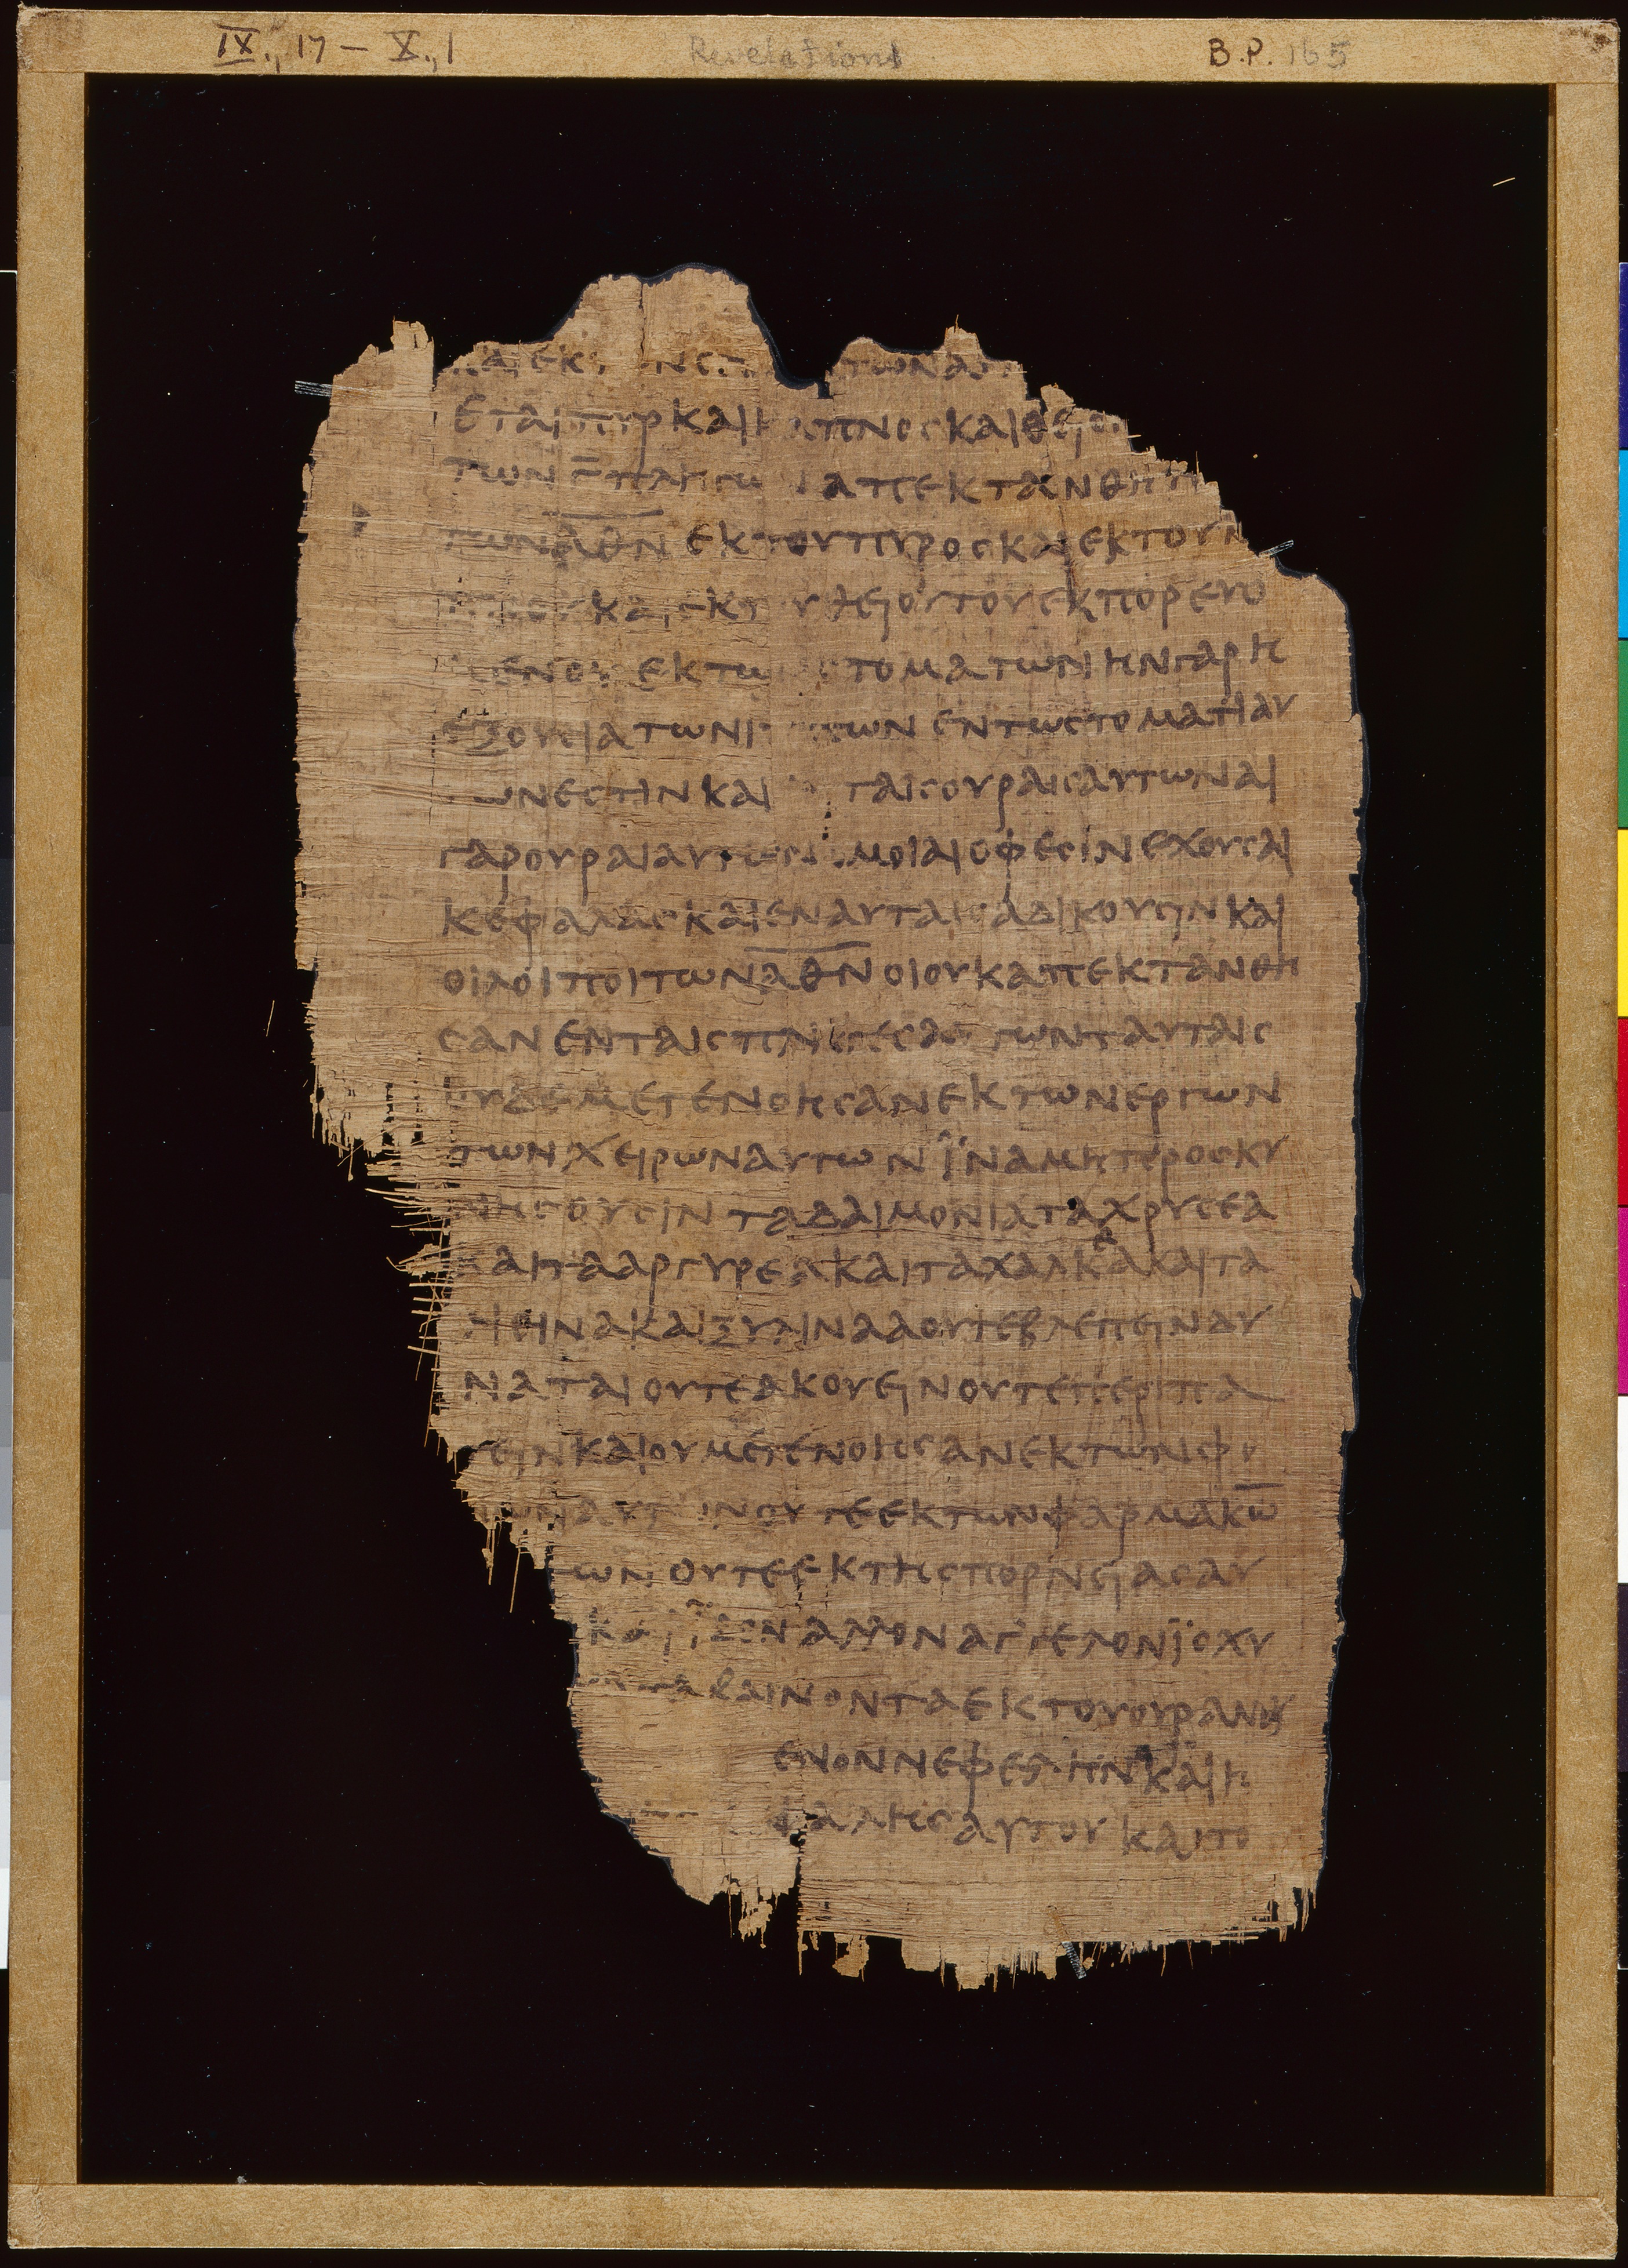 IX., 17 — X., 1 Revelations B.P. 165
και εκ τωνα
εται πυρ και καπνος και θειο
των γ πληγω απεκτανθη
των α̅θ̅ν̅ εκ του πυρος και εκ του κ
ου και εκ του θειου του εκπορευο
μενου εκ των στοματων ην γαρ η
εξουσια των ιππων εν τω στοματι αυ
των εστιν και ταις ουραις αυτων αι
γαρ ουραι αυτων ομοιαι οφεσιν εχουσαι
κεφαλας και εν αυταις αδικουσιν και
οι λοιποι των α̅θ̅ν̅ οι ουκ απεκτανθη
σαν εν ταις αυταις
ουδε μετενοησαν εκ των εργων
των χειρων αυτων ϊνα μη προσκυ
νησουσιν τα δαιμονια τα χρυσεα
και τα αργυρεα και τα χαλκεα και τα
λιθινα και ξυλινα α ουτε βλεπειν δυ
ναται ουτε ακουειν ουτε περιπα
τειν και ου μετενοησαν εκ των φο
νων αυτων ουτε εκ των φαρμακω̅
των ουτε εκ της πορνειας αυ
και ϊδον αλλον αγγελον ϊσχυ
καταβαινοντα εκ του ουρανου
ενον νεφελην και η
φαλης αυτου και το